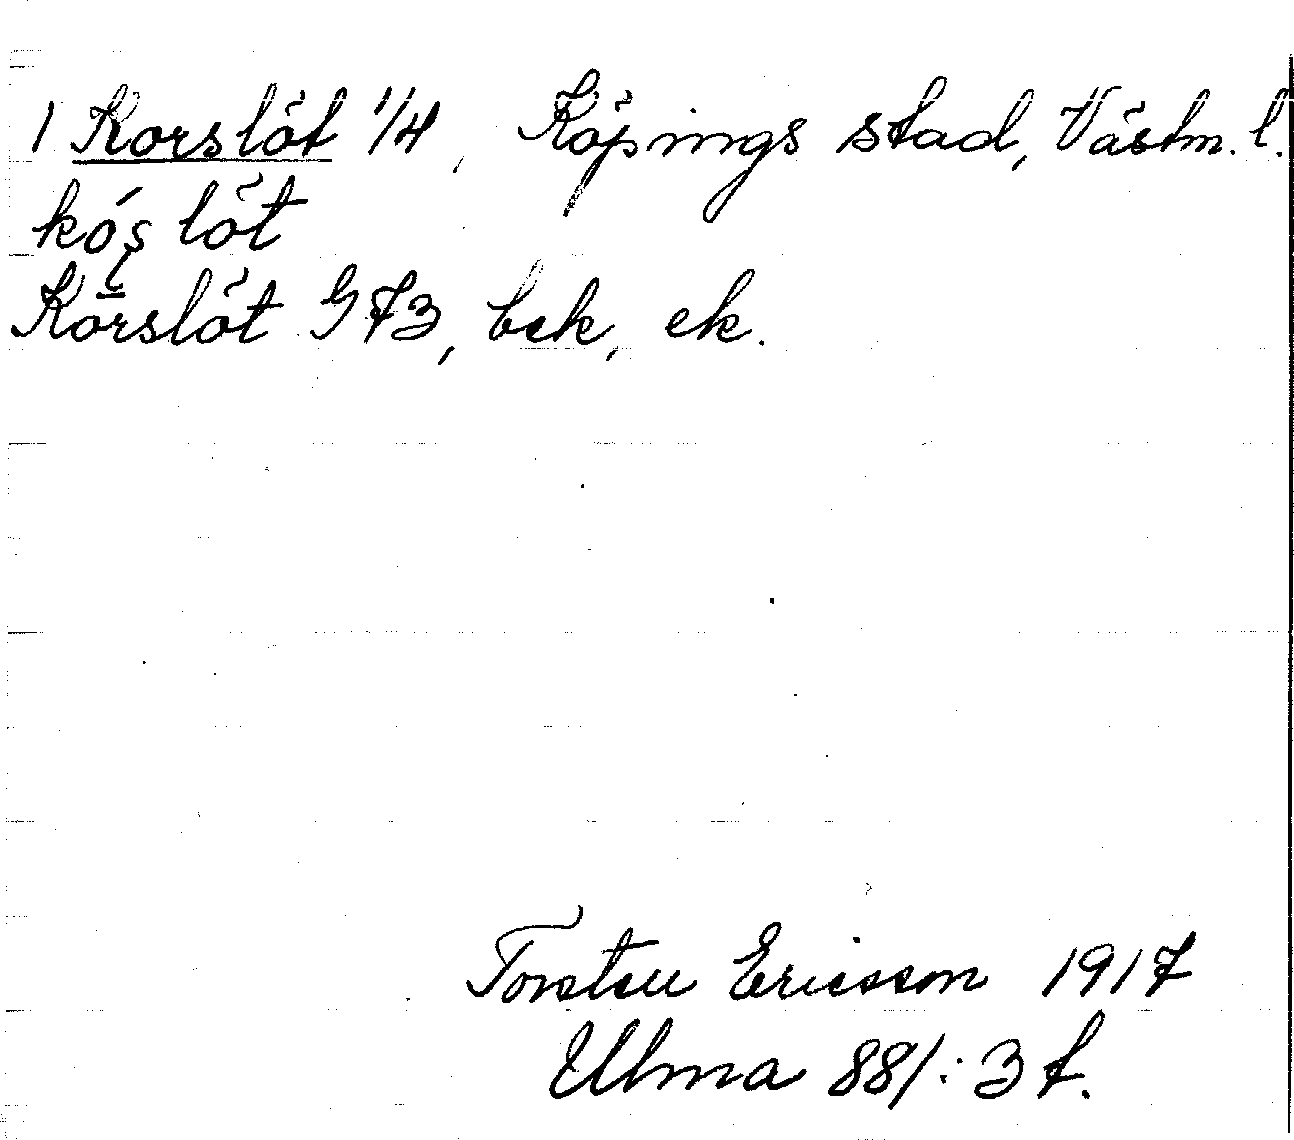 1 Korslöt 1/4, Köpings stad, Västm. l.
kóş löt
Körslöt G73, bek, ek.
Torsten Ericsson 1917
Ulma 881:3 f.